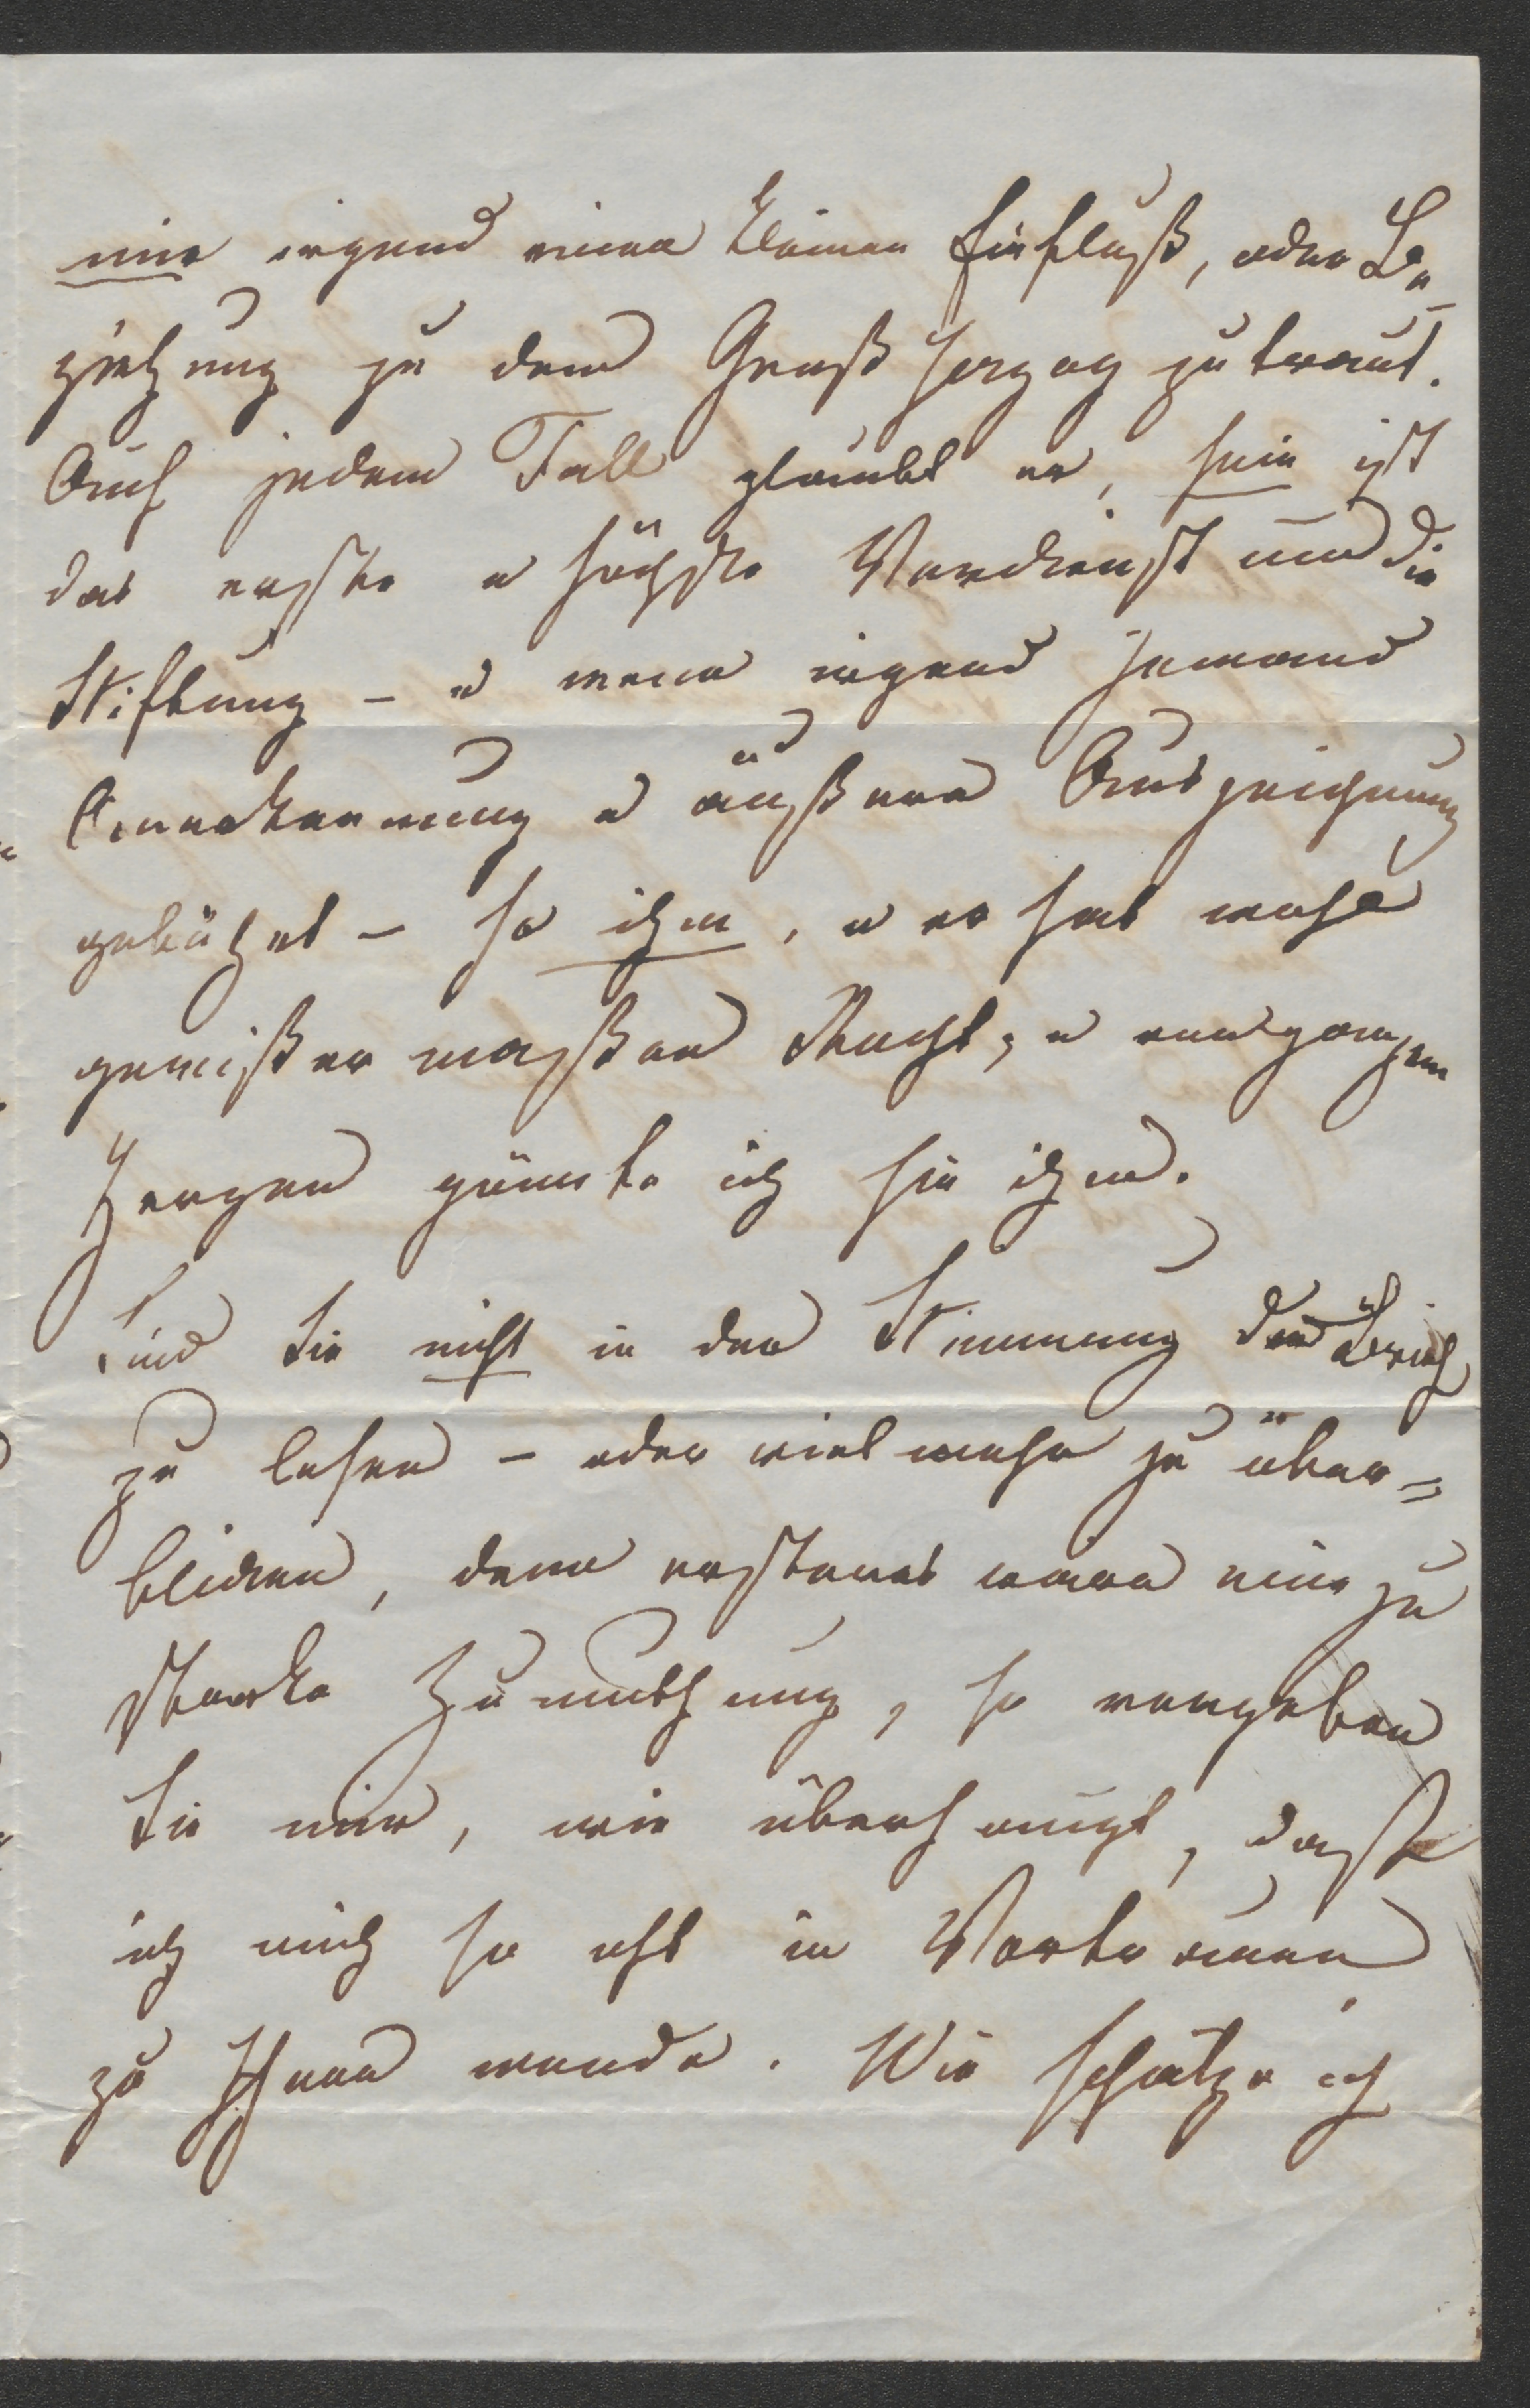 mir irgend einen kleinen Einfluß, oder Be-
ziehung zu dem Großherzog zutraut.
Auf jeden Fall glaubt er, sein ist
das erste u höchste Verdienst um die
Stiftung – u wenn irgend Jemand
Anerkennung u äußere Auszeichnung
gebührt – so ihm, u er hat wohl
gewißermaßen Recht, u von ganzem
Herzen gönnte ich sie ihm.
Sind Sie nicht in der Stimmung den
zu lesen – oder vielmehr zu über=
blicken, denn ersteres wäre eine zu
starke Zumuthung, so vergeben
Sie mir, wie überhaupt, dass
ich mich so oft in Vertrauen
zu Ihnen wende. Wie schätze ich